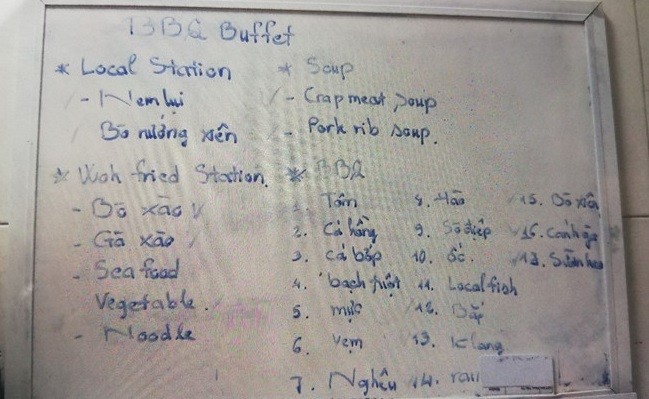 BBQ Buffet
* Local Station
- Nem lụi
Bò nướng xiên
* Wok fried Station.
- Bò xào
- Gà xào
- Sea food
Vegetable.
- Noodle
* Soup
- Crap meat soup
- Pork rib soup.
* BBQ
1. Tôm
2. Cá hồng
3. cá bớp
4. bạch tuột
5. mực
6. Vẹm
7. Nghêu
8. Hào
9. Sò điệp
10. ốc.
11. Local fish
12. Bắp
13. K lang
14.
15. Bò xiên
16. Cánh gà
17. Sườn heo